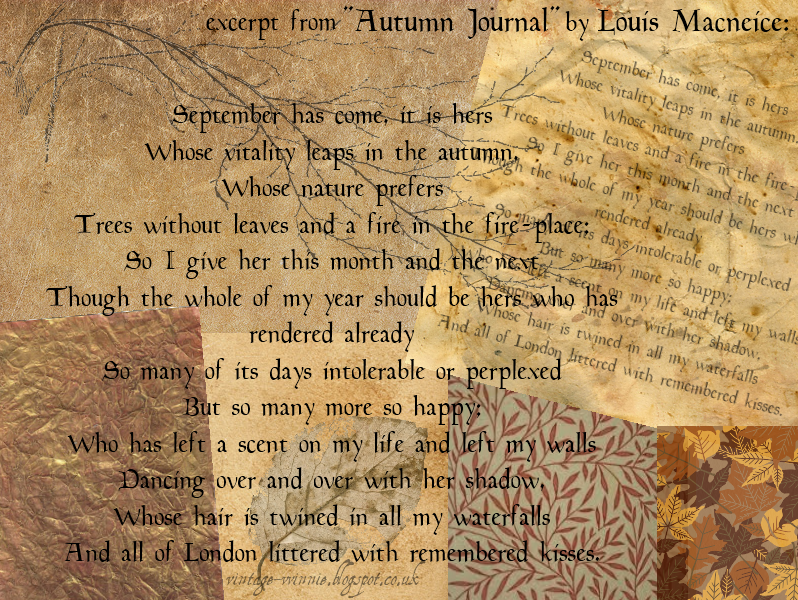 excerpt from "Autumn Journal" by Louis Macneice:
September has come, it is hers
Whose vitality leaps in the autumn,
Whose nature prefers
Trees without leaves and a fire in the fire-place;
So I give her this month and the next
Though the whole of my year should be hers who has
rendered already
So many of its days intolerable or perplexed
But so many more so happy;
Who has left a scent on my life and left my walls
Dancing over and over with her shadow,
Whose hair is twined in all my waterfalls
And all of London littered with remembered kisses.
vintage-winnie.blogspot.co.uk
September has come, it is hers
Whose vitality leaps in the autumn,
Whose nature prefers
Trees without leaves and a fire in the fire-
So I give her this month and the next
though the whole of my year should be hers wh
rendered already
So many its days intolerable or perplexed
But so many more so happy;
a scent on my life and left my walls
Dancing and over with her shadow,
Whose hair is twined in all my waterfalls
And all of London littered with remembered kisses.